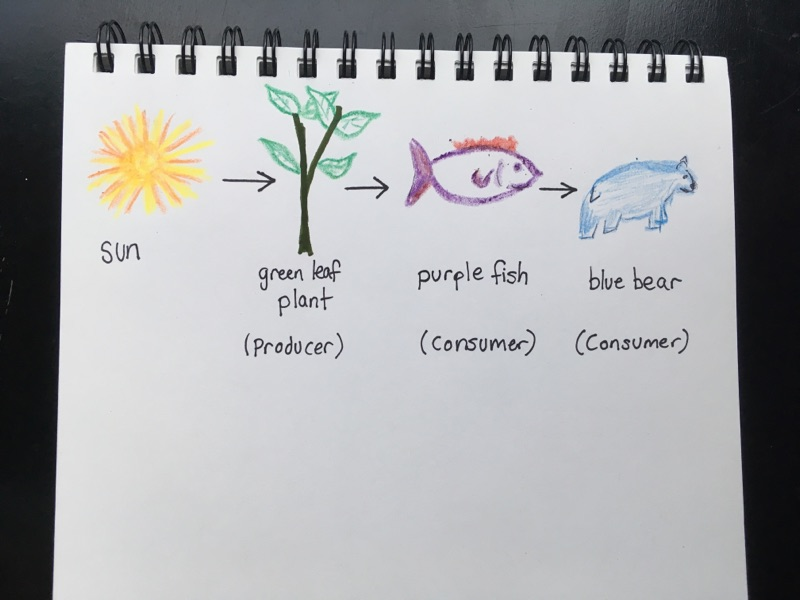 sun
green leaf
plant
(Producer)
purple fish
(Consumer)
blue bear
(Consumer)